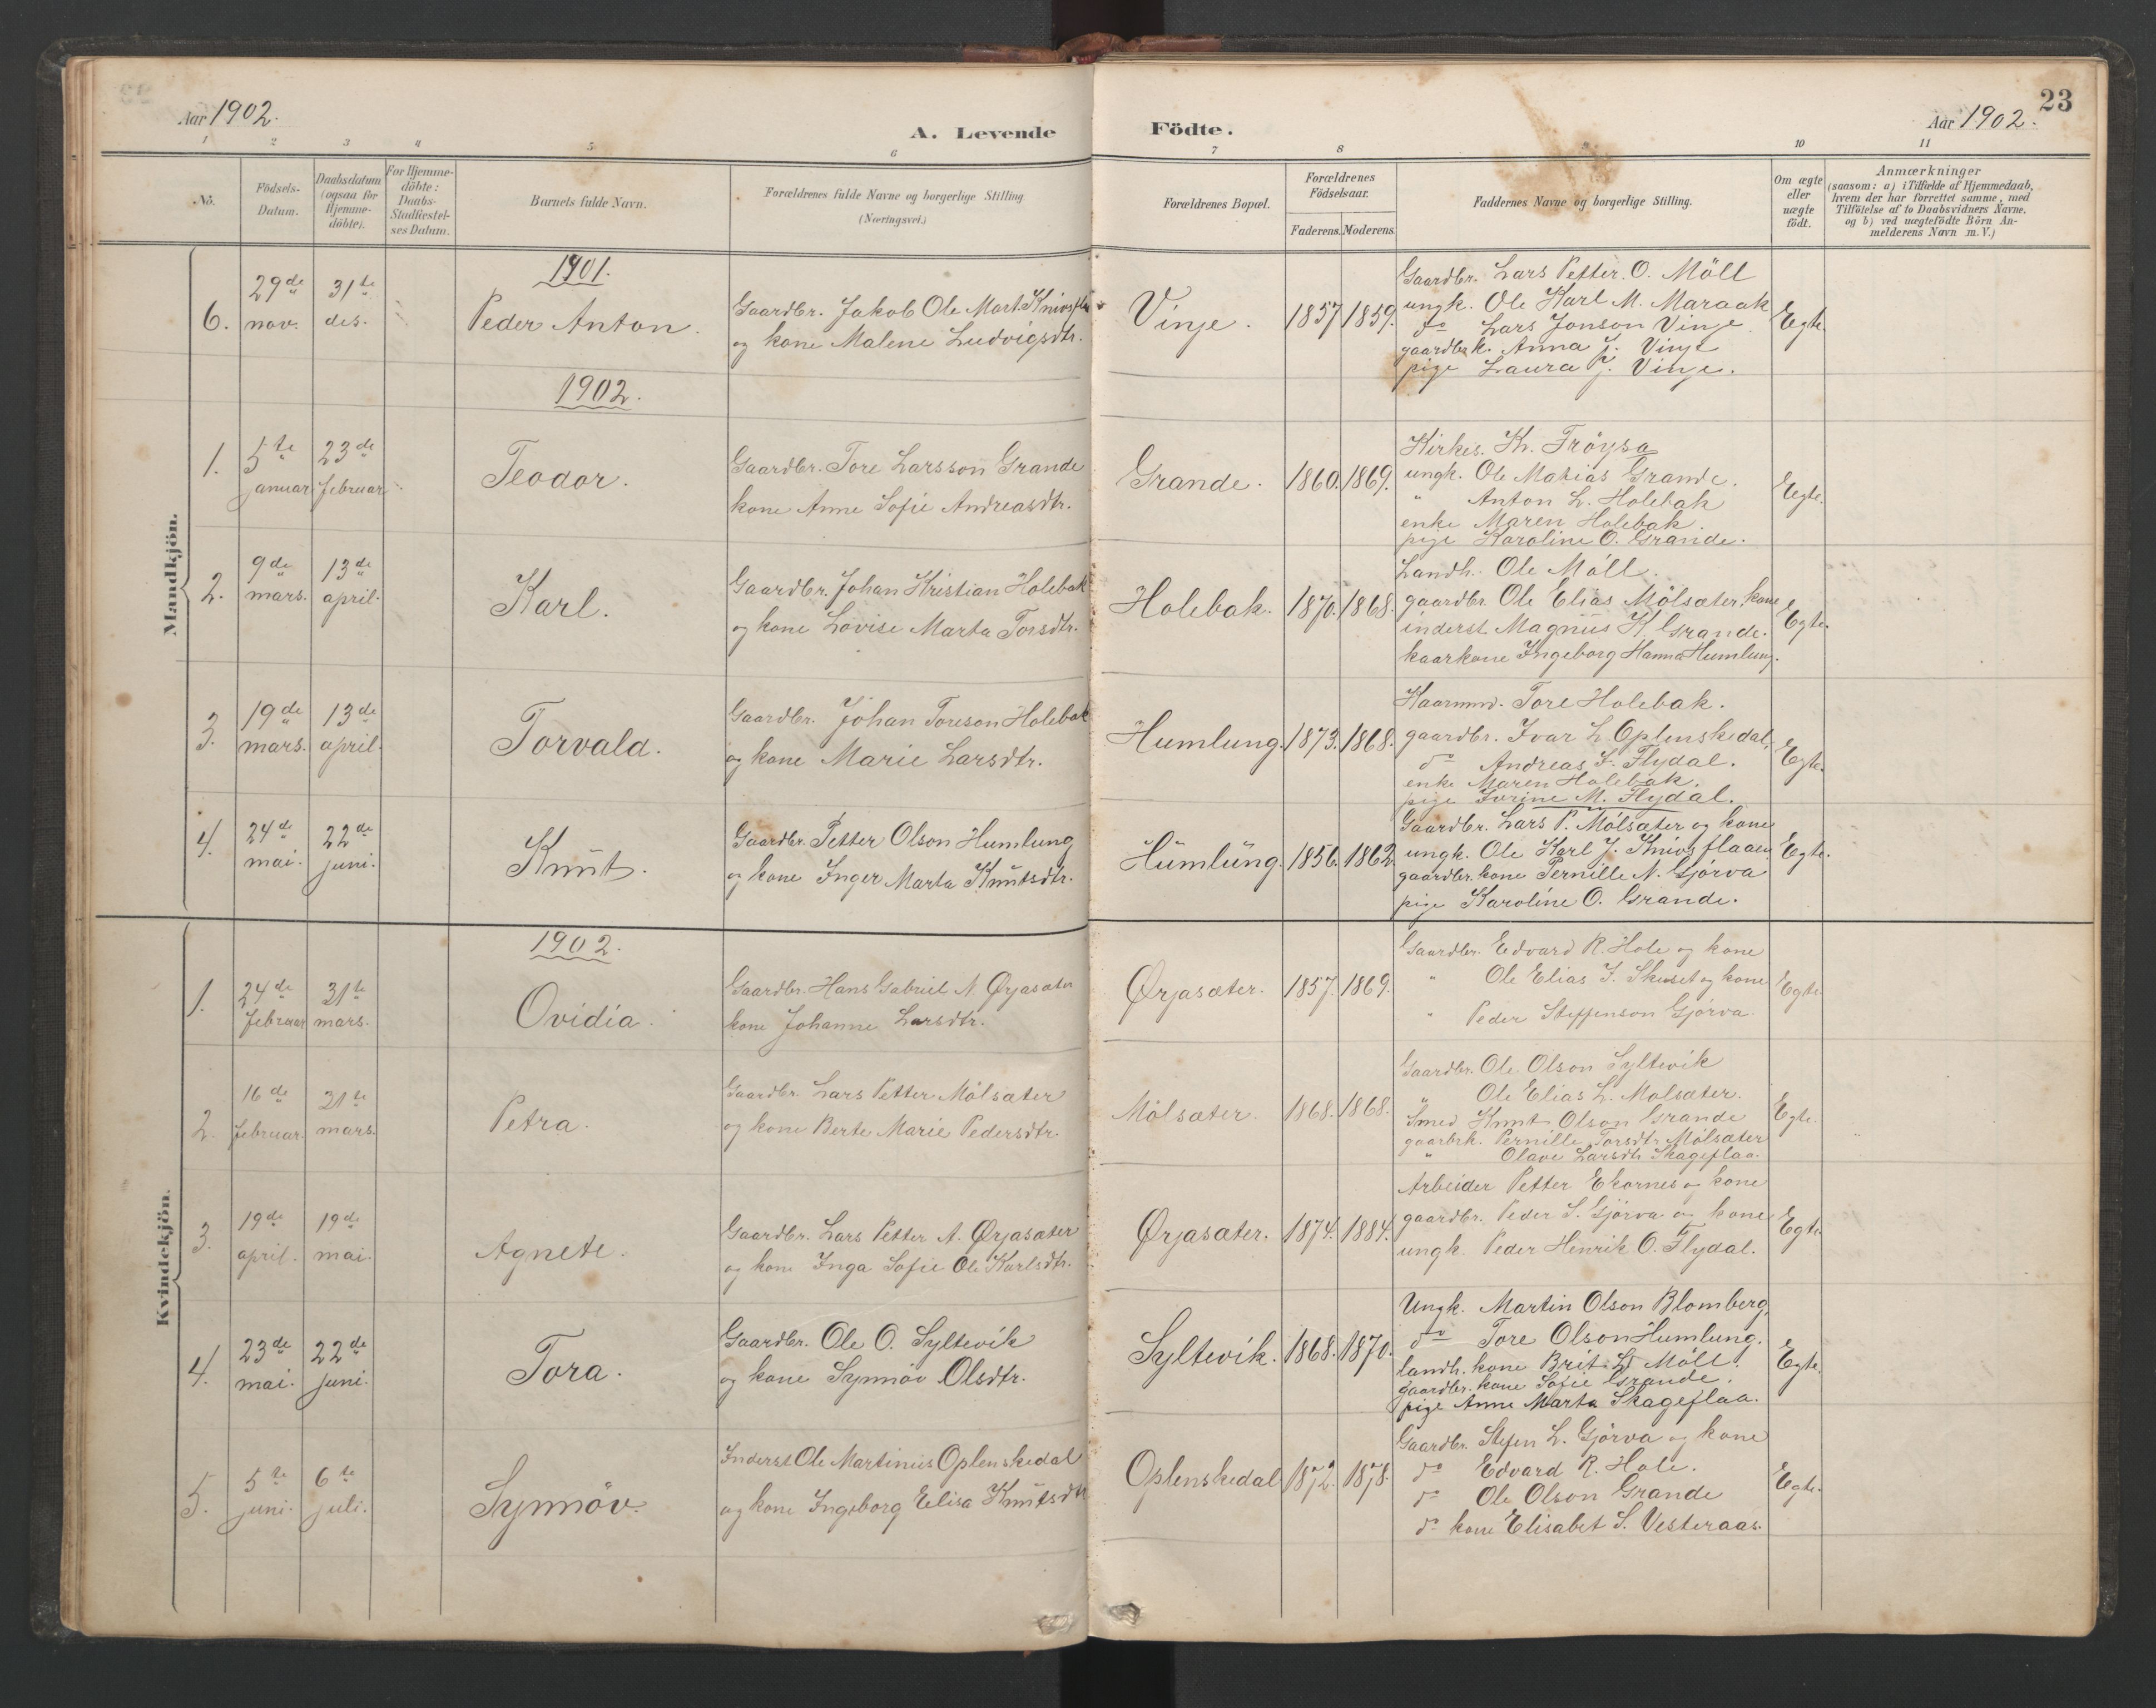 23
Aar 1902.
A. Levende Födte.
Aar 1902.
1 2 3 4 5 6 7 8 9 10 11
No.
Födsels-Datum.
Daabsdatum (ogsaa for Hjemme-döbte).
For Hjemme-döbte: Daabs-Stadfæstel-ses Datum.
Barnets fulde Navn.
Forældrenes fulde Navne og borgerlige Stilling (Næringsvei.)
Forældrenes Bopæl.
Forældrenes Födselsaar.
Faderens. Moderens.
Faddernes Navne og borgerlige Stilling.
Om ægte eller uægte födt.
Anmærkninger
(saasom: a) i Tilfælde af Hjemmedaab,
hvem der har forrettet samme, med
Tilföielse af to Daabsvidners Navne.
og b) ved uægtefödte Börn An-
melderens Navn m. V.)
Mandkjön.
1901.
6. 29de nov. 31te des.
Peder Anton.
Gaardbr. Jakob Ole Mart. Knivsfla
og kone Malene Ludvigsdtr.
Vinje. 1857 1859.
Gaardbr. Lars Petter O. Möll
ungk. Ole Karl M. Maraak
do Lars Jonson Vinje
gaardbrk. Anna J. Vinje
pige Laura J. Vinje.
Egte.
1902.
1. 5te januar 23de februar
Teodor.
Gaardbr. Tore Larsson Grande
kone Anne Sofie Andreasdtr.
Grande. 1860. 1869.
Kirkes. Kr. Tröysa
ungk. Ole Matias Grande.
" Anton L. Holebak
enke Maren Holebak.
pige Karoline O. Grande.
Egte.
2. 9de mars. 13de april.
Karl.
Gaardbr. Johan Kristian Holebak
og kone Lovise Marta Torsdtr.
Holebak. 1870. 1868.
Landh. Ole Möll.
gaardbr. Ole Elias Mölsæter, kone
inderst Magnus K. Grande.
kaarkone Ingeborg Hanna Humlung.
Egte.
3. 19de mars. 13de april.
Torvald.
Gaardbr. Johan Toreson Holebak
og kone Marie Larsdtr.
Humlung. 1873. 1868.
Kaarmd. Tore Holebak.
gaardbr. Ivar L. Oplenskedal,
do Andreas I. Flydal.
enke Maren Holebak.
pige Ivrine M. Flydal.
Egte.
4. 24de mai. 22de juni.
Knut.
Gaardbr. Petter Olson Humlung
og kone Inger Marta Knutsdtr.
Humlung. 1856. 1862
Gaardbr. Lars P. Mölsæter og kone
ungk. Ole Karl J. Knivsflaaen
gaardbr. kone Pernille N. Gjörva
pige Karoline O. Grande.
Egte.
Kvindekjön.
1902.
1. 24de februar 31te mars.
Ovidia.
Gaardbr. Hans Gabriel N. Ørjasæter
kone Johanne Larsdtr.
Ørjasæter. 1857. 1869.
Gaardbr. Edvard R. Hole og kone
" Ole Elias I. Skuset og kone
" Peder Steffenson Gjörva.
Egte
2. 16de februar. 31te mars.
Petra.
Gaardbr. Lars Petter Mölsæter
og kone Berte Marie Pedersdtr.
Mölsæter. 1868. 1868.
Gaardbr. Ole Olson Syltevik
" Ole Elias L. Molsæter.
Smed Knut Olson Grande
gaarbrk. Pernille Torsdtr Mölsæter
" Olave Larsdtr Skageflaa.
Egte.
3. 19de april. 19de mai.
Agnete.
Gaardbr. Lars Petter A. Ørjasæter
og kone Inga Sofie Ole Karlsdtr.
Ørjasæter. 1874. 1884.
Arbeider Petter Ekornes og kone
gaardbr. Peder S. Gjörva og kone
ungk. Peder Henrik O. Flydal.
Egte.
4. 23de mai. 22de juni.
Tora.
Gaardbr. Ole O. Syltevik
og kone Synnöv Olsdtr.
Syltevik. 1868. 1870.
Ungk. Martin Olson Blomberg,
do Tore Olson Humlung.
landh. kone Brit L. Möll.
gaardbr. kone Sofie Grande.
pige Anne Marta Skageflaa.
Egte.
5. 5te juni. 6te juli.
Synnöv.
Inderst Ole Martinius Oplenskedal
og kone Ingeborg Elisa Knutsdtr
Oplenskedal 1872. 1878.
Gaardbr. Stefen L. Gjörva og kone
do Edvard R. Hole.
do Ole Olson Grande
do kone Elisabet S. Vesteraas.
Egte.